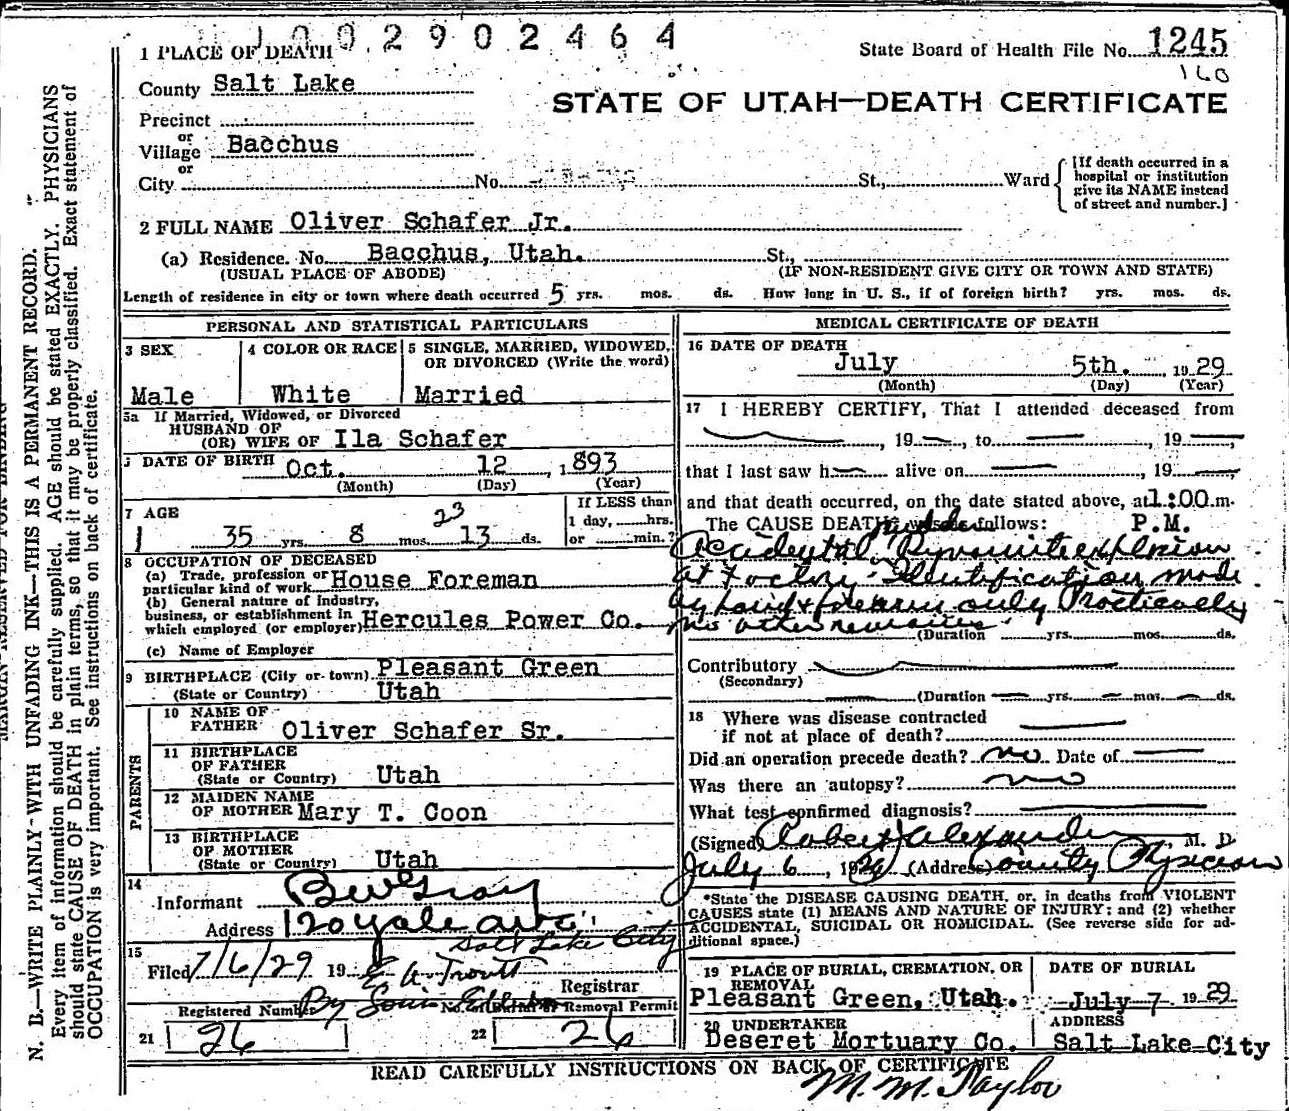 1 0 0 2 9 0 2 4 6 4
1 PLACE OF DEATH
State Board of Health File No. 1245
160
County Salt Lake
STATE OF UTAH—DEATH CERTIFICATE
Precinct
or
Village Bacchus
or
City No. St., Ward
[If death occurred in a
hospital or institution
give its NAME instead
of street and number.]
2 FULL NAME Oliver Schafer Jr.
(a) Residence. No. Bacchus, Utah. St.,
(USUAL PLACE OF ABODE) (IF NON-RESIDENT GIVE CITY OR TOWN AND STATE)
Length of residence in city or town where death occurred 5 yrs. mos. ds. How long in U. S., if of foreign birth? yrs. mos. ds.
PERSONAL AND STATISTICAL PARTICULARS
3 SEX
Male
4 COLOR OR RACE
White
5 SINGLE, MARRIED, WIDOWED,
OR DIVORCED (Write the word)
Married
5a If Married, Widowed, or Divorced
HUSBAND OF
(OR) WIFE OF Ila Schafer
DATE OF BIRTH Oct. 12, 1893
(Month) (Day) (Year)
7 AGE
23
35 yrs. 8 mos. 13 ds.
If LESS than
1 day, hrs.
or min.?
8 OCCUPATION OF DECEASED
(a) Trade, profession or
particular kind of work House Foreman
(b) General nature of Industry,
business, or establishment in
which employed (or employer) Hercules Power Co.
(c) Name of Employer
9 BIRTHPLACE (City or town) Pleasant Green
(State or Country) Utah
PARENTS
10 NAME OF
FATHER Oliver Schafer Sr.
11 BIRTHPLACE
OF FATHER
(State or Country) Utah
12 MAIDEN NAME
OF MOTHER Mary T. Coon
13 BIRTHPLACE
OF MOTHER
(State or Country) Utah
14
Informant B W Gray
Address 120 Yale Ave
Salt Lake City
15
Filed 7/6/29 19 E A Troutt
Registrar
By Louis
Registered Number No. of Burial or Removal Permit
21 26 22 26
MEDICAL CERTIFICATE OF DEATH
16 DATE OF DEATH
July 5th. 1929
(Month) (Day) (Year)
17 I HEREBY CERTIFY, That I attended deceased from
, 19 , to , 19
that I last saw h alive on , 19
and that death occurred, on the date stated above, at 1:00 m.
The CAUSE DEATH was as follows: P.M.
Accidental Dynamite explosion
at Factory. Identification made
by hand & forearm only Practically
no other remains.
(Duration yrs. mos. ds.
Contributory
(Secondary)
(Duration yrs. mos. ds.
18 Where was disease contracted
if not at place of death?
Did an operation precede death? no Date of
Was there an autopsy? no
What test confirmed diagnosis?
(Signed) Robert Alexander, M. D.
July 6, 1929 (Address) County Physician
*State the DISEASE CAUSING DEATH, or, in deaths from VIOLENT
CAUSES state (1) MEANS AND NATURE OF INJURY; and (2) whether
ACCIDENTAL, SUICIDAL OR HOMICIDAL. (See reverse side for ad-
ditional space.)
19 PLACE OF BURIAL, CREMATION, OR
REMOVAL
Pleasant Green, Utah.
DATE OF BURIAL
July 7 1929
20 UNDERTAKER
Deseret Mortuary Co.
ADDRESS
Salt Lake City
READ CAREFULLY INSTRUCTIONS ON BACK OF CERTIFICATE
M. M. Taylor
MARGIN RESERVED FOR BINDING
N. B.—WRITE PLAINLY WITH UNFADING INK—THIS IS A PERMANENT RECORD.
Every item of information should be carefully supplied. AGE should be stated EXACTLY. PHYSICIANS
should state CAUSE OF DEATH in plain terms, so that it may be properly classified. Exact statement of
OCCUPATION is very important. See instructions on back of certificate.